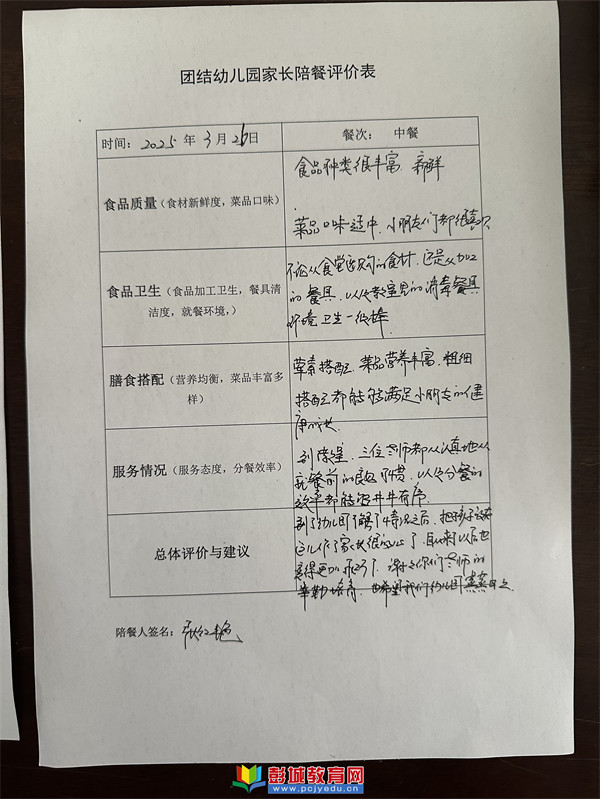 团结幼儿园家长陪餐评价表
时间：2025 年 3 月 26日
餐次： 中餐
食品质量（食材新鲜度，菜品口味）
食品种类很丰富 新鲜
菜品口味适中，小朋友们都很喜欢
食品卫生（食品加工卫生，餐具清
洁度，就餐环境，）
不论从食堂选购的食材，还是从加工
的餐具，以及教室里的消毒餐具
环境卫生一级棒
膳食搭配（营养均衡，菜品丰富多
样）
荤素搭配，菜品营养丰富，粗细
搭配都能够满足小朋友的健
康成长
服务情况（服务态度，分餐效率）
到课堂，三位老师都从认真地从
就餐前的良好习惯，以及分餐的
效率都能够井井有序
总体评价与建议
到了幼儿园了解了情况之后，把孩子
这儿作了家长很放心了
谢谢你们老师的
辛勤培养，也希望我们幼儿园蒸蒸日上
陪餐人签名：
彭城教育网
www.pcjyedu.cn